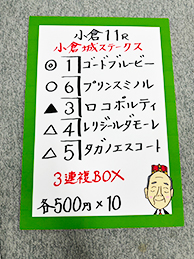 小倉11R
小倉城ステークス
◎ 1 ゴードブルービー
○ 6 プリンスミノル
▲ 3 ロコポルティ
△ 4 レリジールダモーレ
△ 5 タガノエスコート
3連複BOX
各500円×10